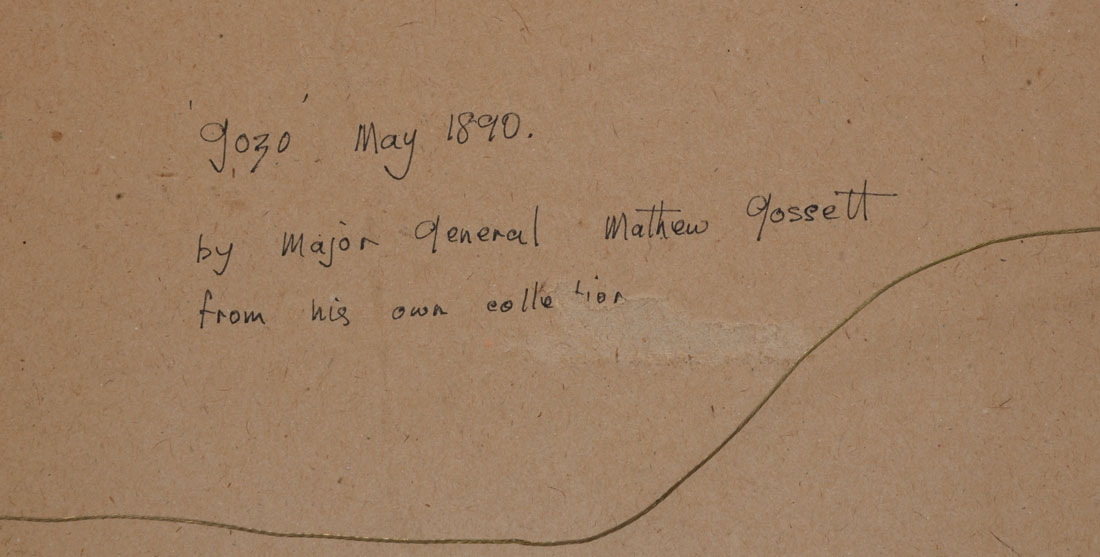 'Gozo' May 1890.
by Major General Mathew Gossett
from his own colle tion